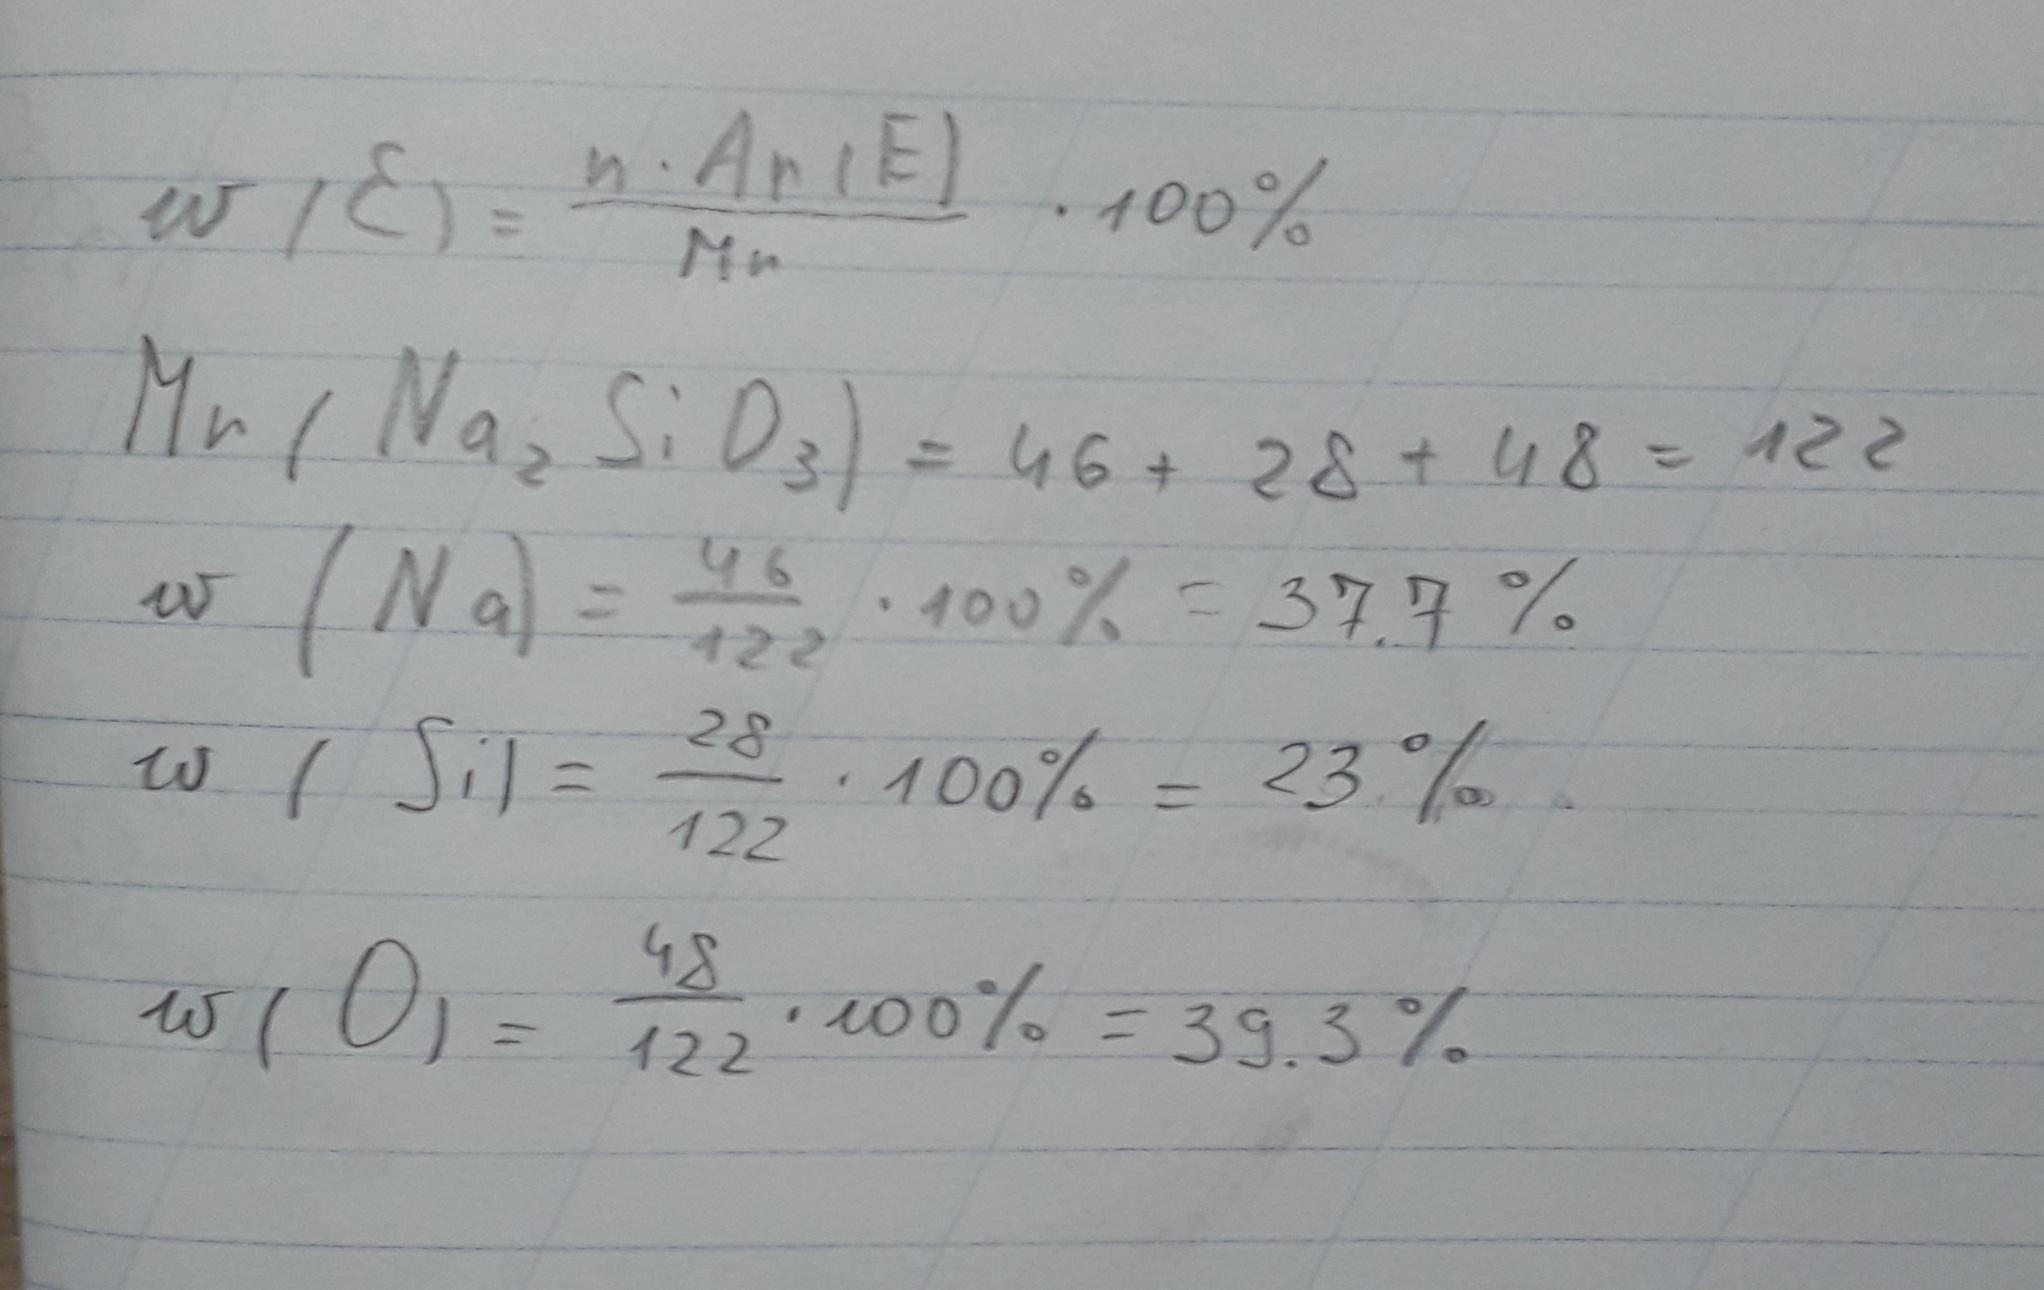 w(E) = n · Ar(E) / Mr · 100%
Mr(Na₂SiO₃) = 46 + 28 + 48 = 122
w(Na) = 46 / 122 · 100% = 37.7%
w(Si) = 28 / 122 · 100% = 23%
w(O) = 48 / 122 · 100% = 39.3%